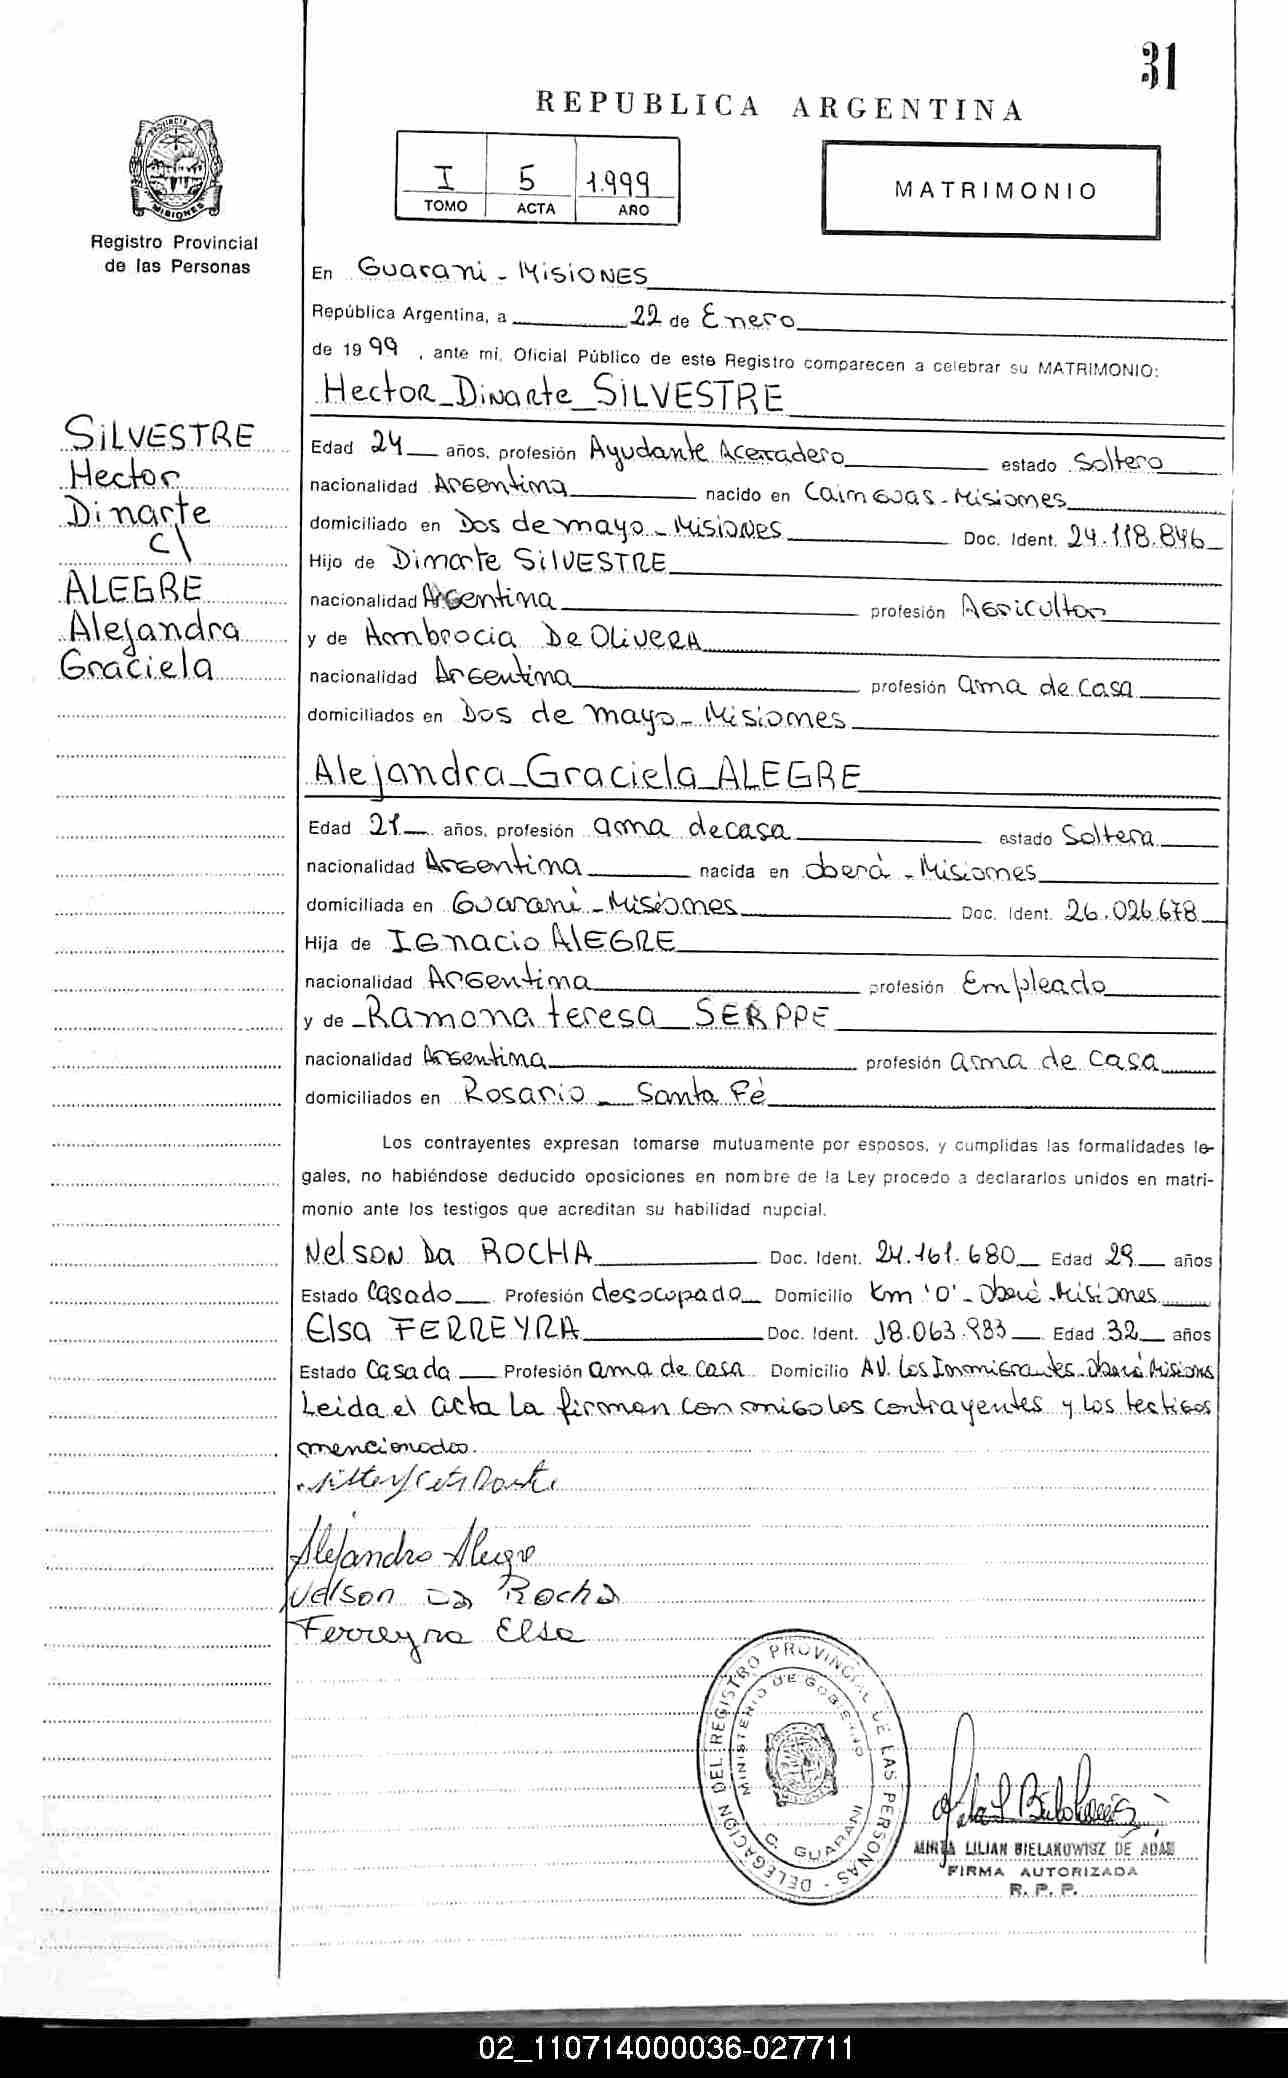 31
REPUBLICA ARGENTINA
I 5 1.999
TOMO ACTA AÑO
MATRIMONIO
Registro Provincial
de las Personas
SILVESTRE
Hector
Dinarte
c/
ALEGRE
Alejandra
Graciela
En Guarani - Misiones
República Argentina, a 22 de Enero
de 1999, ante mí, Oficial Público de este Registro comparecen a celebrar su MATRIMONIO:
Hector Dinarte SILVESTRE
Edad 24 años, profesión Ayudante Acerradero estado Soltero
nacionalidad Argentina nacido en Cainguas - Misiones
domiciliado en Dos de mayo - Misiones Doc. Ident. 24.118.846
Hijo de Dinarte SILVESTRE
nacionalidad Argentina profesión Agricultor
y de Ambrocia De OLIVERA
nacionalidad Argentina profesión ama de casa
domiciliados en Dos de mayo - Misiones
Alejandra Graciela ALEGRE
Edad 21 años, profesión ama de casa estado Soltera
nacionalidad Argentina nacida en oberá - Misiones
domiciliada en Guarani - Misiones Doc. Ident. 26.026.678
Hija de Ignacio AlEGRE
nacionalidad Argentina profesión Empleado
y de Ramona teresa SERPPE
nacionalidad Argentina profesión ama de casa
domiciliados en Rosario - Santa Fé
Los contrayentes expresan tomarse mutuamente por esposos, y cumplidas las formalidades le-
gales, no habiéndose deducido oposiciones en nombre de la Ley procedo a declararlos unidos en matri-
monio ante los testigos que acreditan su habilidad nupcial.
Nelson Da ROCHA Doc. Ident. 24.161.680 Edad 29 años
Estado Casado Profesión desocupado Domicilio Km '0' - Oberá - Misiones
Elsa FERREYRA Doc. Ident. 18.063.983 Edad 32 años
Estado Casada Profesión ama de casa Domicilio AV. Los Inmigrantes Oberá Misiones
Leida el acta la firman conmigo los contrayentes y los testigos
mencionados.
Alejandra Alegre
Nelson Da Rocha
Ferreyra Elsa
DELEGACION DEL REGISTRO PROVINCIAL DE LAS PERSONAS
MINISTERIO DE GOBIERNO
C. GUARANI
MIRTA LILIAN BIELAKOWISZ DE ADAM
FIRMA AUTORIZADA
R. P. P.
02_110714000036-027711